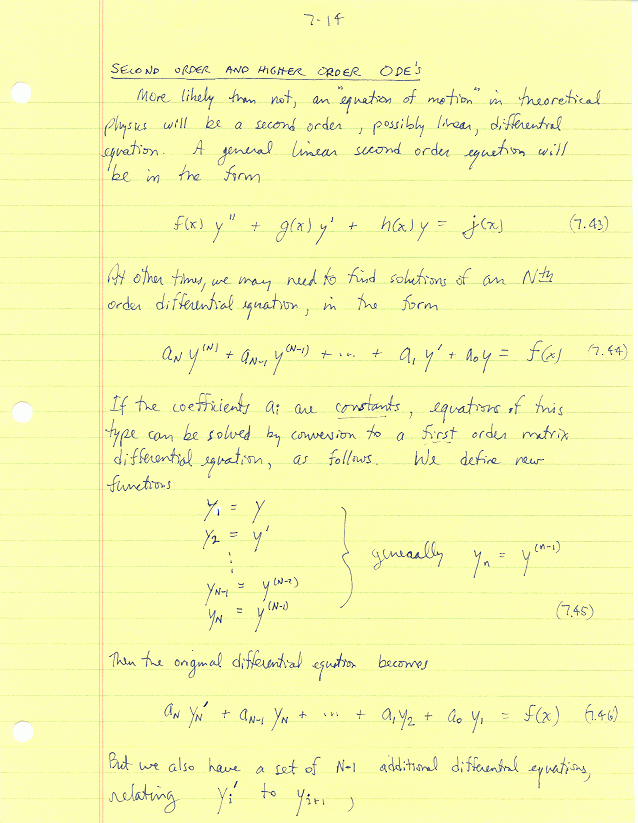 7-14
SECOND ORDER AND HIGHER ORDER ODE's
More likely than not, an "equation of motion" in theoretical
physics will be a second order, possibly linear, differential
equation. A general linear second order equation will
be in the form
f(x) y'' + g(x) y' + h(x) y = j(x) (7.43)
At other times, we may need to find solutions of an Nth
order differential equation, in the form
a_N y^(N) + a_{N-1} y^(N-1) + ... + a_1 y' + a_0 y = f(x) (7.44)
If the coefficients a_i are constants, equations of this
type can be solved by conversion to a first order matrix
differential equation, as follows. We define new
functions
y_1 = y
y_2 = y'
⋮
generally y_n = y^(n-1)
y_{N-1} = y^(N-2)
y_N = y^(N-1) (7.45)
Then the original differential equation becomes
a_N y_N' + a_{N-1} y_N + ... + a_1 y_2 + a_0 y_1 = f(x) (7.46)
But we also have a set of N-1 additional differential equations,
relating y_i' to y_{i+1},